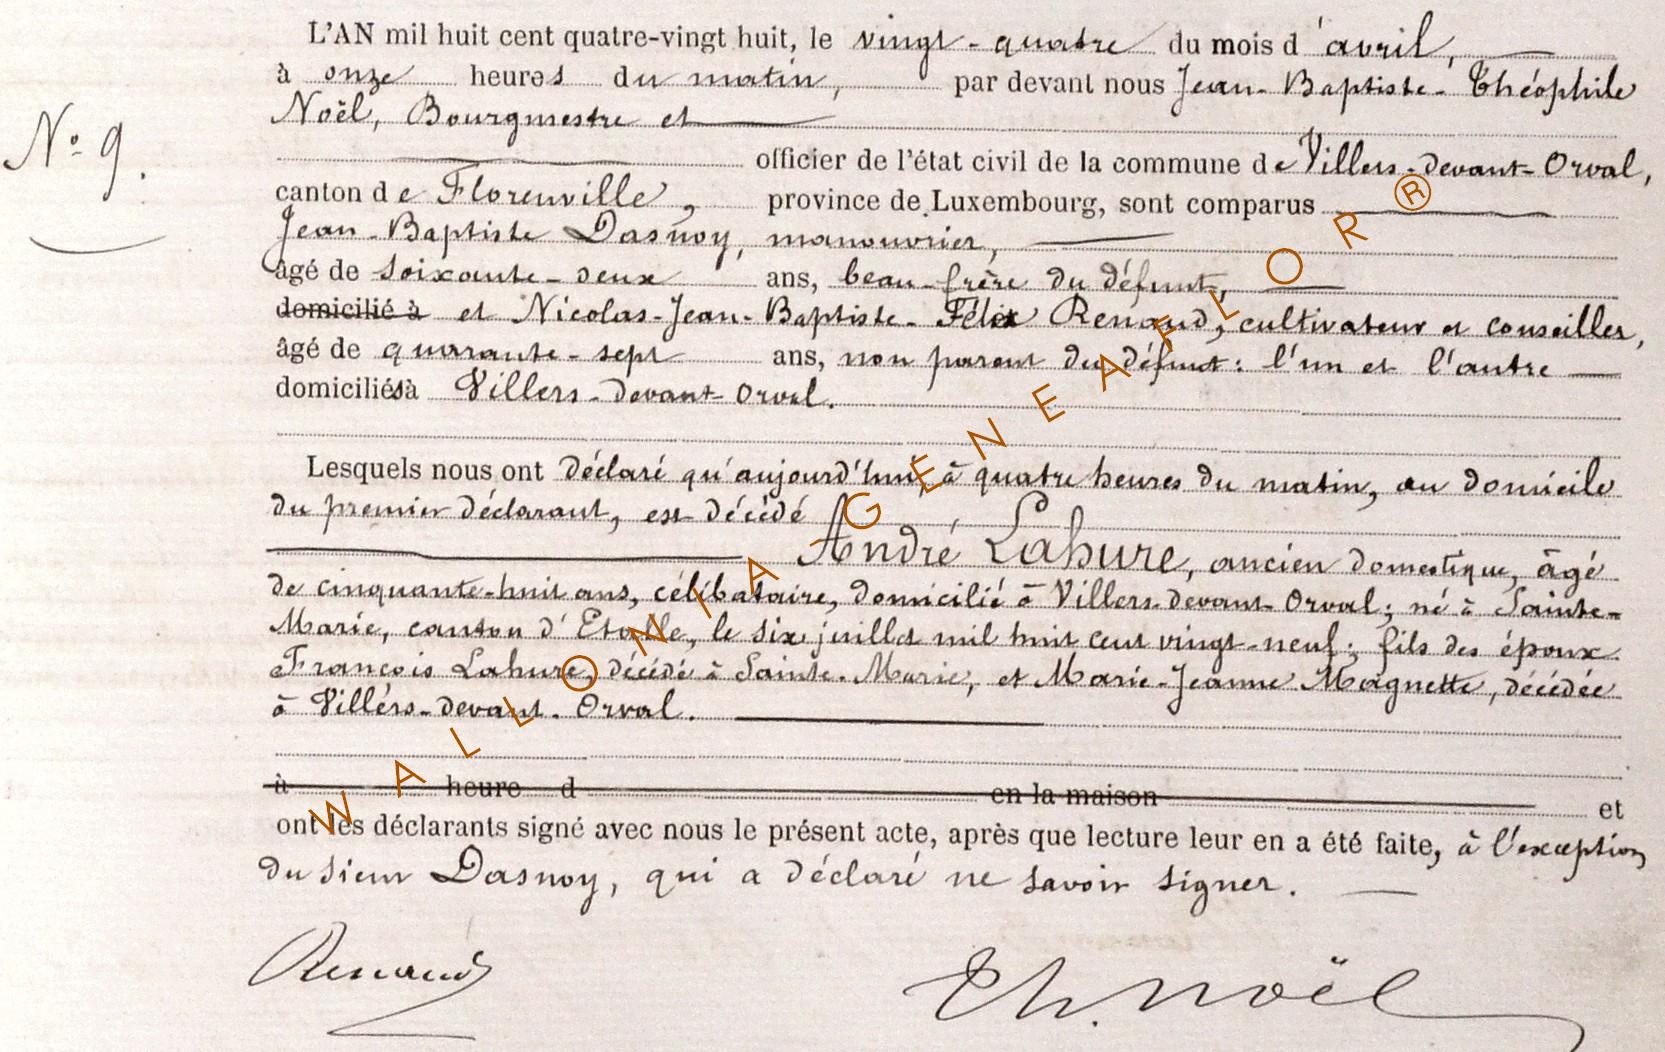 L'AN mil huit cent quatre-vingt huit, le vingt-quatre du mois d'avril,
à onze heures du matin, par devant nous Jean-Baptiste-Théophile
Noël, Bourgmestre et
N° 9.
officier de l'état civil de la commune de Villers-devant-Orval,
canton de Florenville, province de Luxembourg, sont comparus
Jean-Baptiste Dasnoy, manouvrier,
âgé de soixante-deux ans, beau-frère du défunt,
domicilié à et Nicolas-Jean-Baptiste-Félix Renaud, cultivateur et conseiller,
âgé de quarante-sept ans, non parent du défunt: l'un et l'autre
domiciliés à Villers-devant-Orval.
Lesquels nous ont déclaré qu'aujourd'hui, à quatre heures du matin, au domicile
du premier déclarant, est décédé
André Lahure, ancien domestique, âgé
de cinquante-huit ans, célibataire, domicilié à Villers-devant-Orval; né à Sainte-
Marie, canton d'Etalle, le six juillet mil huit cent vingt-neuf; fils des époux
François Lahure, décédé à Sainte-Marie, et Marie-Jeanne Magnette, décédée
à Villers-devant-Orval.
à heure d en la maison et
ont les déclarants signé avec nous le présent acte, après que lecture leur en a été faite, à l'exception
du sieur Dasnoy, qui a déclaré ne savoir signer.
Renaud Th. Noël
WALLONIA GENEAFLOR ®